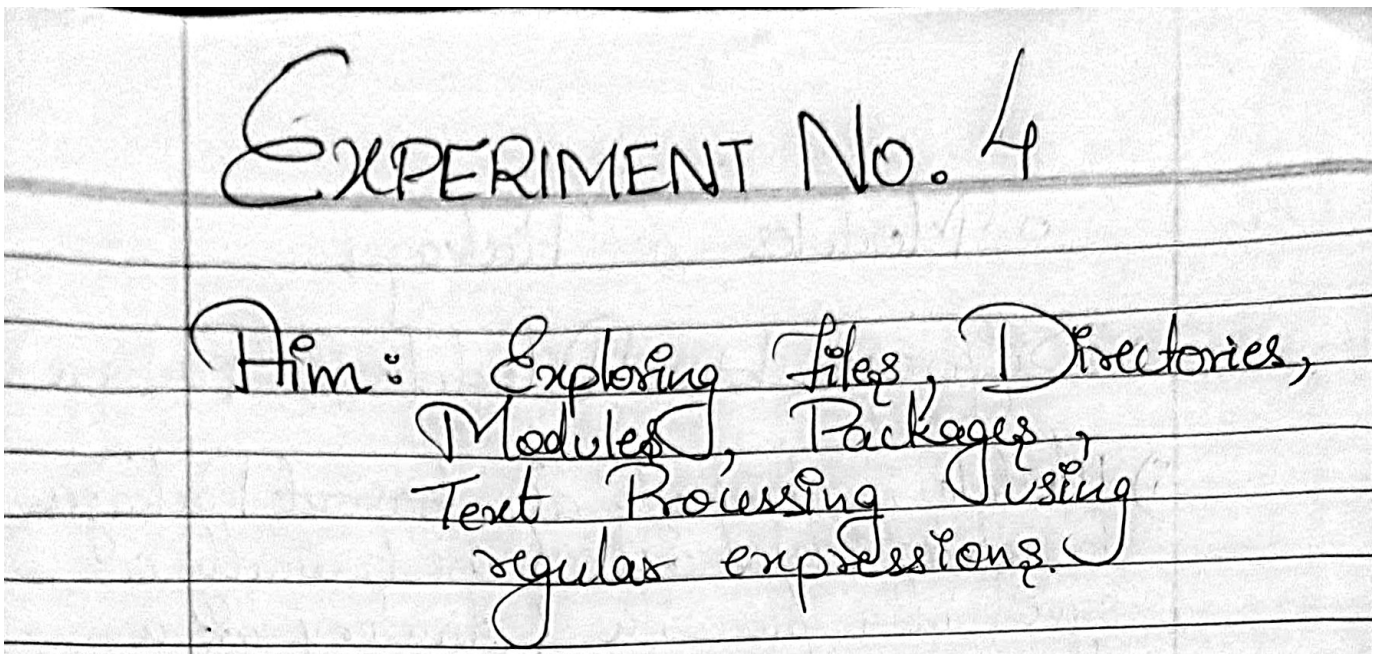 EXPERIMENT No. 4
Aim: Exploring files, Directories,
Modules, Packages,
Text Processing using
regular expressions.